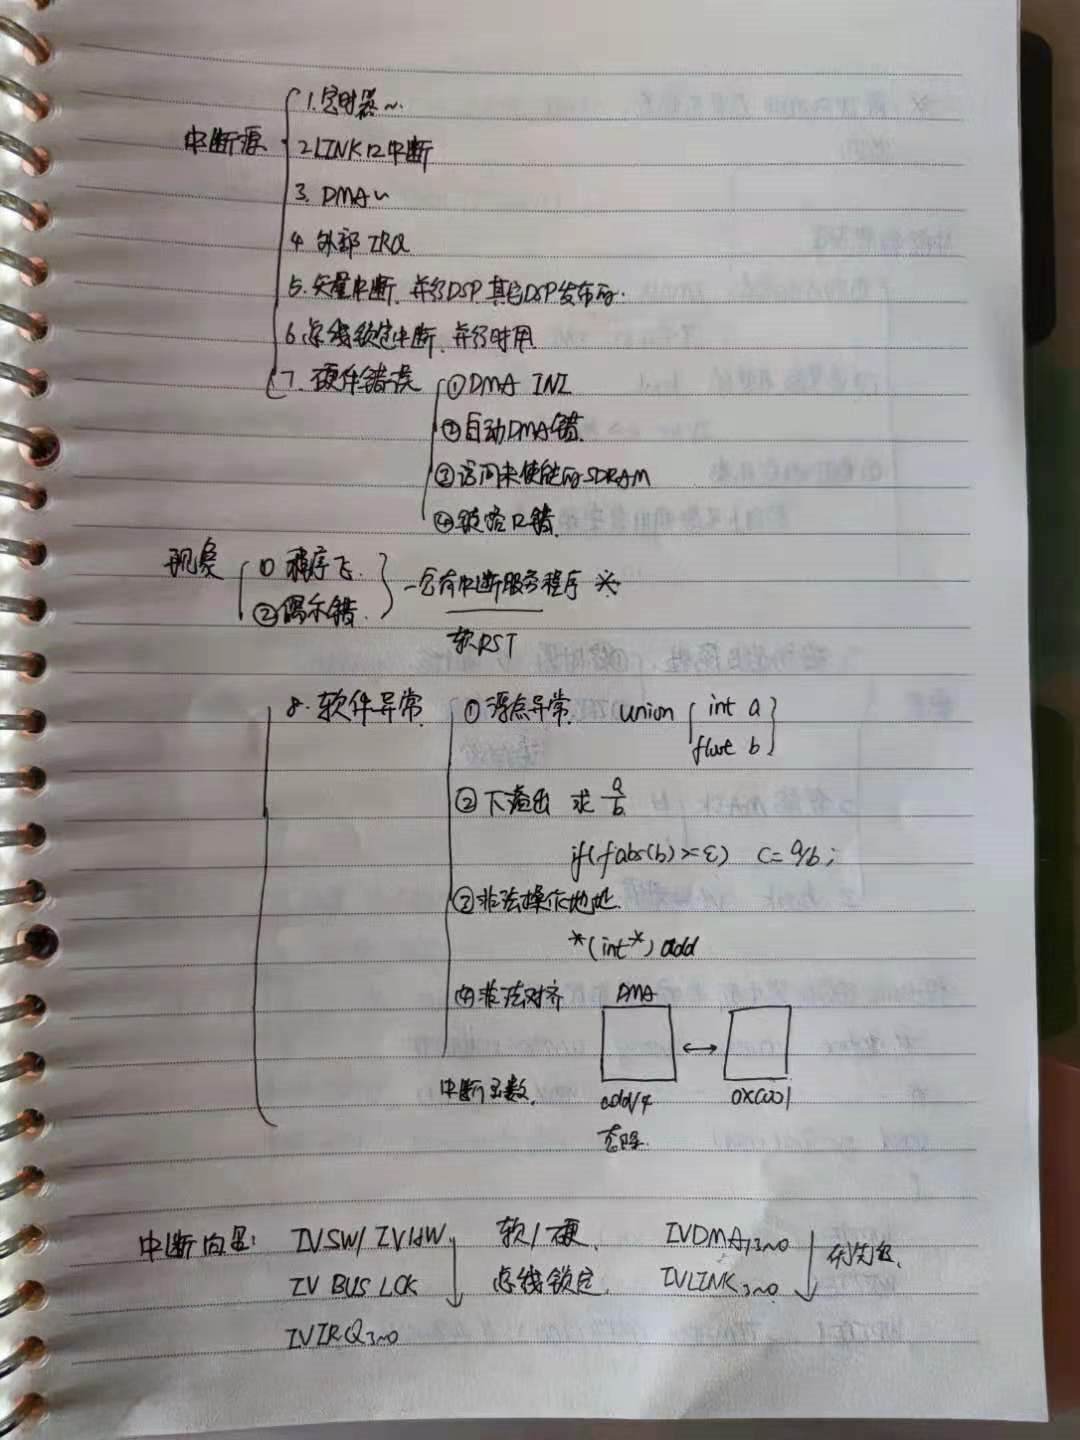 中断源
1.定时器~
2 LINK口中断
3. DMA~
4 外部 IRQ
5.矢量中断. 并行DSP.其它DSP发布的.
6.总线锁定中断.并行时用
7. 硬件错误 ①DMA INI
②自动DMA错.
③访问未使能的SDRAM
④链路口错.
现象 ① 程序飞. —会有中断服务程序 ※
②偶尔错.
软RST
8. 软件异常 ①浮点异常. union { int a
float b }
②下溢出 求 a/b
if(fabs(b)>=ε) c=a/b;
③非法操作地址.
*(int*) add
④非法对齐 DMA
中断函数. add/4 ↔ 0xC001
去除.
中断向量: IVSW/IVHW 软/硬. IVDMA13~0 优先级.
IV BUS LCK 总线锁定. IVLINK3~0
IVIRQ3~0